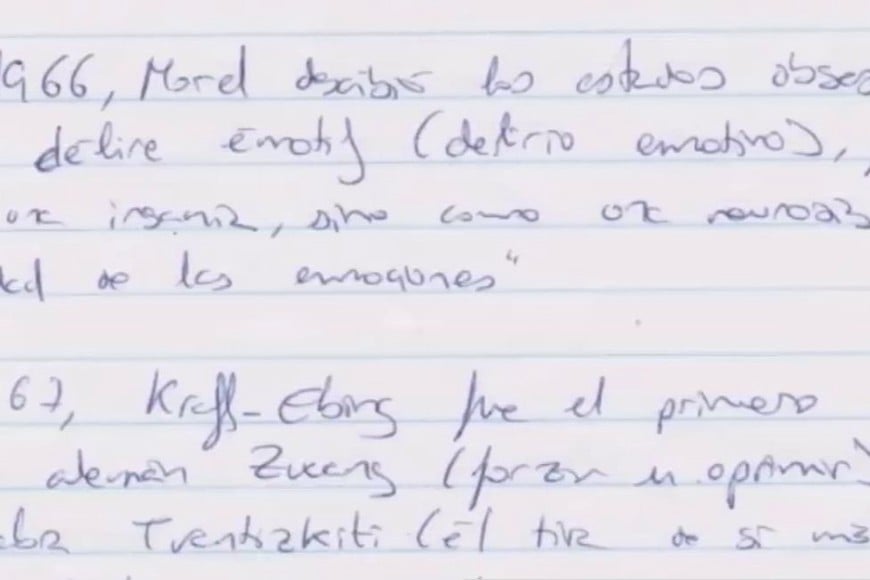 966, Morel describió los estados obses
délire émotif (delirio emotivo),
una insania, sino como una neurosis
de las emociones"
67, Krafft-Ebing fue el primero
alemán Zwang (forzar u oprimir)
Tventizkiti (él tira de sí m